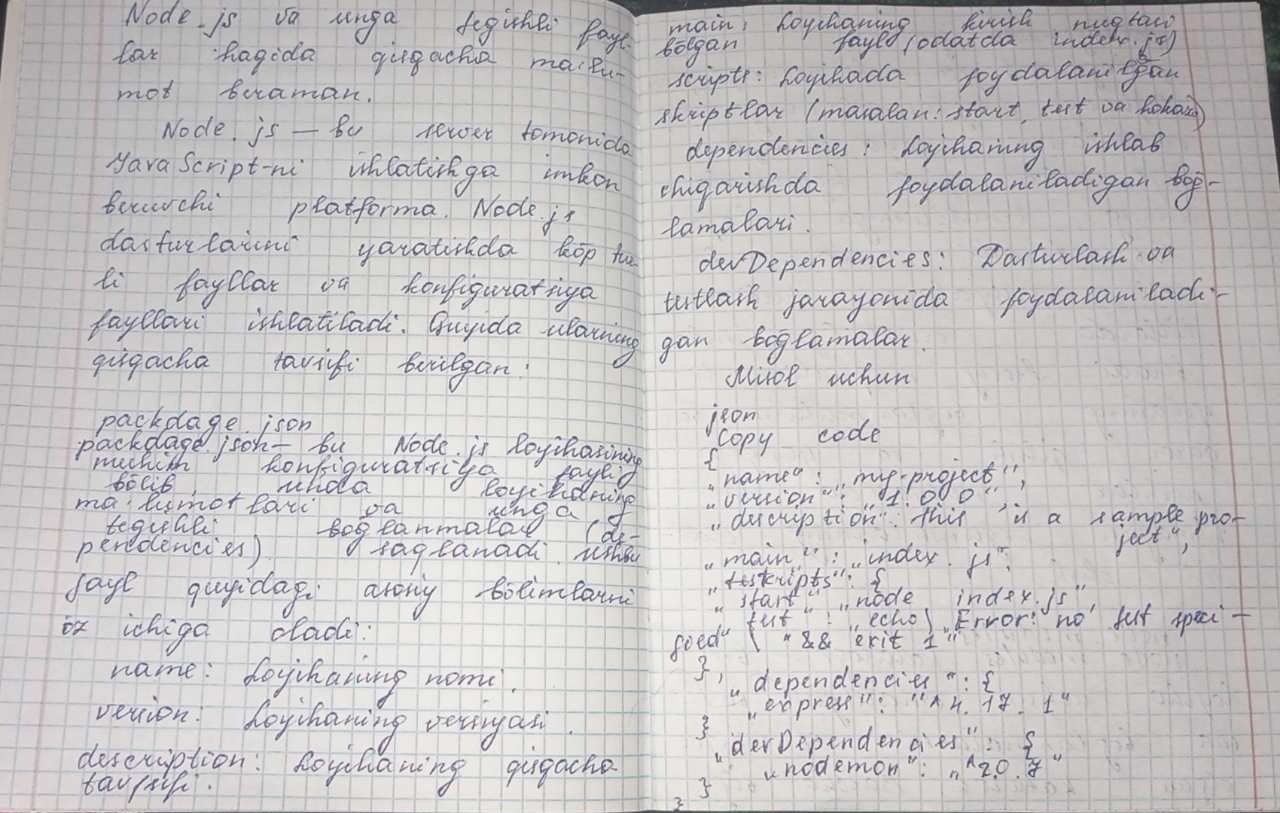 Node.js va unga tegishli fayl-
lar haqida qisqacha ma'lu-
mot beraman.
Node.js — bu server tomonida
JavaScript-ni ishlatishga imkon
beruvchi platforma. Node.js
dasturlarini yaratishda ko'p tur-
li fayllar va konfiguratsiya
fayllari ishlatiladi. Quyida ularning
qisqacha tavsifi berilgan:
packdage.json
packdage.json — bu Node.js loyihasining
muhim konfiguratsiya fayli
bo'lib unda loyihaning
ma'lumotlari va unga
tegishli bog'lanmalar (de-
pendencies) saqlanadi. Ushbu
fayl quyidagi asosiy bo'limlarni
o'z ichiga oladi:
name: Loyihaning nomi.
version: Loyihaning versiyasi.
description: Loyihaning qisqacha
tavsifi.
main: Loyihaning kirish nuqtasi
bo'lgan fayl (odatda index.js)
scripts: Loyihada foydalanilgan
skriptlar (masalan: start, test va hokazo)
dependencies: Loyihaning ishlab
chiqarishda foydalaniladigan bog'-
lamalari.
devDependencies: Dasturlash va
testlash jarayonida foydalaniladi-
gan bog'lamalar.
Misol uchun
json
Copy code
{
„name“: „my-project“,
„version“: „1.0.0“,
„description“: This is a sample pro-
ject“,
„main“: „index.js“.
„teskripts“: {
„start“ „node index.js“
test“: „echo\ „Error: no test speci-
fied“ \ “&& exit 1“
},
„dependencies“: {
„express“: “^4.17.1“
}
„devDependencies“: {
„nodemon“: „^2.0.7“
}
}